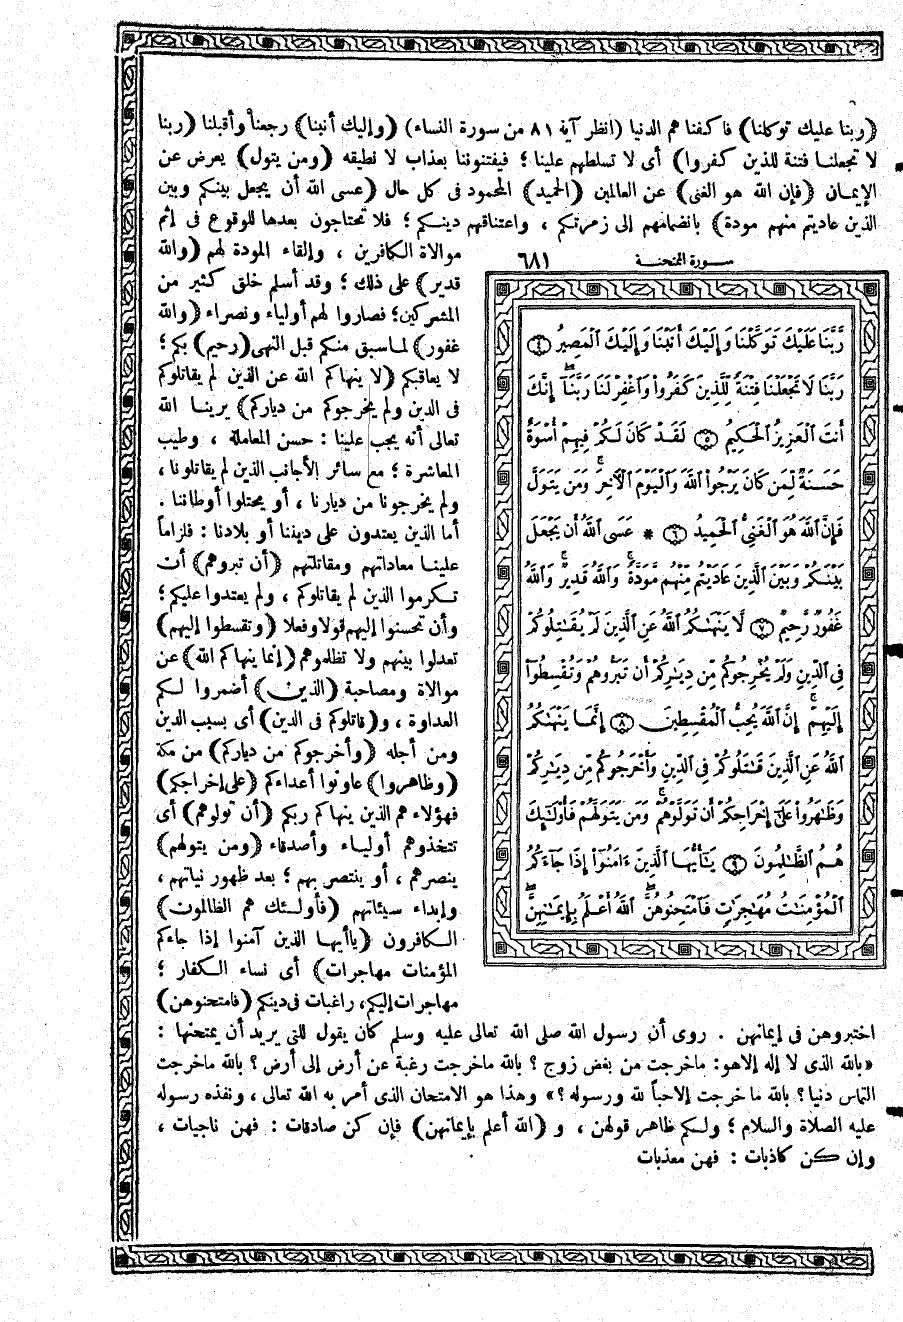 (ربنا عليك توكلنا) فاكفنا هم الدنيا (انظر آية ٨١ من سورة النساء) (وإليك أنبنا) رجعنا وأقبلنا (ربنا
لا تجعلنا فتنة للذين كفروا) أى لا تسلطهم علينا؛ فيفتنوننا بعذاب لا نطيقه (ومن يتول) يعرض عن
الإيمان (فإن الله هو الغنى) عن العالمين (الحميد) المحمود فى كل حال (عسى الله أن يجعل بينكم وبين
الذين عاديتم منهم مودة) بانضمامهم إلى زمرتكم، واعتناقهم دينكم؛ فلا تحتاجون بعدها للوقوع فى إثم
موالاة الكافرين، وإلقاء المودة لهم (والله
قدير) على ذلك؛ وقد أسلم خلق كثير من
المشركين؛ فصاروا لهم أولياء ونصراء (والله
غفور) لما سبق منكم قبل النهى (رحيم) بكم؛
لا يعاقبكم (لا ينهاكم الله عن الذين لم يقاتلوكم
فى الدين ولم يخرجوكم من دياركم) يرينا الله
تعالى أنه يجب علينا: حسن المعاملة، وطيب
المعاشرة؛ مع سائر الأجانب الذين لم يقاتلونا،
ولم يخرجونا من ديارنا، أو يحتلوا أوطاننا.
أما الذين يعتدون على ديننا أو بلادنا: فلزاماً
علينا معاداتهم ومقاتلتهم (أن تبروهم) أن
تكرموا الذين لم يقاتلوكم، ولم يعتدوا عليكم؛
وأن تحسنوا إليهم قولا وفعلا (وتقسطوا إليهم)
تعدلوا بينهم ولا تظلموهم (إنما ينهاكم الله) عن
موالاة ومصاحبة (الذين) أضمروا لكم
العداوة، و(قاتلوكم فى الدين) أى بسبب الدين
ومن أجله (وأخرجوكم من دياركم) من مكة
(وظاهروا) عاونوا أعداءكم (على إخراجكم)
فهؤلاء هم الذين ينهاكم ربكم (أن تولوهم) أى
تتخذوهم أولياء وأصدقاء (ومن يتولهم)
ينصرهم، أو ينتصر بهم؛ بعد ظهور نياتهم،
وإبداء سيئاتهم (فأولئك هم الظالمون)
الكافرون (يا أيها الذين آمنوا إذا جاءكم
المؤمنات مهاجرات) أى نساء الكفار؛
مهاجرات إليكم، راغبات فى دينكم (فامتحنوهن)
سورة الممتحنة ٦٨١
رَّبَّنَا عَلَيْكَ تَوَكَّلْنَا وَإِلَيْكَ أَنَبْنَا وَإِلَيْكَ الْمَصِيرُ ٤
رَبَّنَا لَا تَجْعَلْنَا فِتْنَةً لِّلَّذِينَ كَفَرُوا۟ وَاغْفِرْ لَنَا رَبَّنَآ ۖ إِنَّكَ
أَنتَ الْعَزِيزُ الْحَكِيمُ ٥ لَقَدْ كَانَ لَكُمْ فِيهِمْ أُسْوَةٌ
حَسَنَةٌ لِّمَن كَانَ يَرْجُوا۟ اللَّهَ وَالْيَوْمَ الْآخِرَ ۚ وَمَن يَتَوَلَّ
فَإِنَّ اللَّهَ هُوَ الْغَنِىُّ الْحَمِيدُ ٦ * عَسَى اللَّهُ أَن يَجْعَلَ
بَيْنَكُمْ وَبَيْنَ الَّذِينَ عَادَيْتُم مِّنْهُم مَّوَدَّةً ۚ وَاللَّهُ قَدِيرٌ ۚ وَاللَّهُ
غَفُورٌ رَّحِيمٌ ٧ لَّا يَنْهَىٰكُمُ اللَّهُ عَنِ الَّذِينَ لَمْ يُقَٰتِلُوكُمْ
فِى الدِّينِ وَلَمْ يُخْرِجُوكُم مِّن دِيَٰرِكُمْ أَن تَبَرُّوهُمْ وَتُقْسِطُوٓا۟
إِلَيْهِمْ ۚ إِنَّ اللَّهَ يُحِبُّ الْمُقْسِطِينَ ٨ إِنَّمَا يَنْهَىٰكُمُ
اللَّهُ عَنِ الَّذِينَ قَٰتَلُوكُمْ فِى الدِّينِ وَأَخْرَجُوكُم مِّن دِيَٰرِكُمْ
وَظَٰهَرُوا۟ عَلَىٰٓ إِخْرَاجِكُمْ أَن تَوَلَّوْهُمْ ۚ وَمَن يَتَوَلَّهُمْ فَأُو۟لَٰٓئِكَ
هُمُ الظَّٰلِمُونَ ٩ يَٰٓأَيُّهَا الَّذِينَ ءَامَنُوٓا۟ إِذَا جَآءَكُمُ
الْمُؤْمِنَٰتُ مُهَٰجِرَٰتٍ فَامْتَحِنُوهُنَّ ۖ اللَّهُ أَعْلَمُ بِإِيمَٰنِهِنَّ ۖ
اختبروهن فى إيمانهن. روى أن رسول الله صلى الله تعالى عليه وسلم كان يقول للتى يريد أن يمتحنها:
«بالله الذى لا إله إلا هو: ما خرجت من بغض زوج؟ بالله ما خرجت رغبة عن أرض إلى أرض؟ بالله ما خرجت
التماس دنيا؟ بالله ما خرجت إلا حباً لله ورسوله؟» وهذا هو الامتحان الذى أمر به الله تعالى، ونفذه رسوله
عليه الصلاة والسلام؛ ولكم ظاهر قولهن، و (الله أعلم بإيمانهن) فإن كن صادقات: فهن ناجيات،
وإن كن كاذبات: فهن معذبات